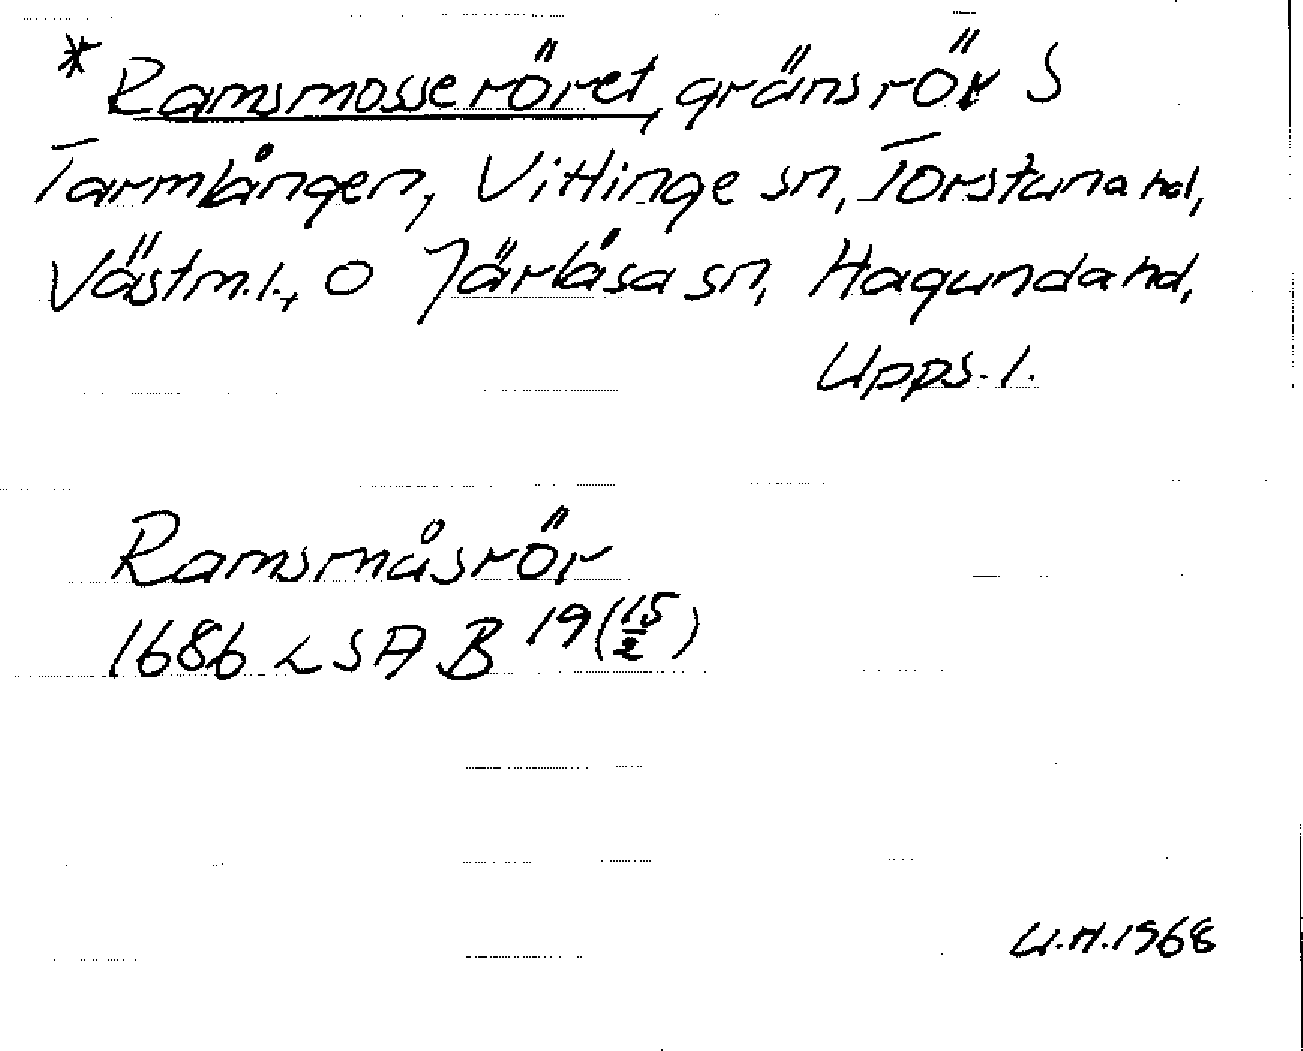 * Ramsmosseröret, gränsrör S
Tarmlången, Vittinge sn, Torstuna hd,
Västm.l., O Järlåsa sn, Hagunda hd,
Upps. l.
Ramsmåsrör
1686 LSA B 19 (15/2)
U.H. 1968